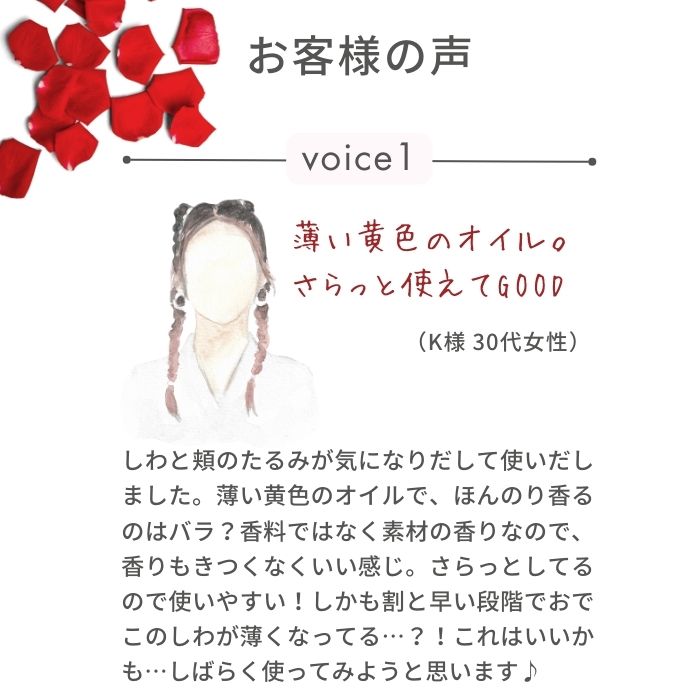 お客様の声
voice1
薄い黄色のオイル。
さらっと使えてGOOD
（K様 30代女性）
しわと頬のたるみが気になりだして使いだし
ました。薄い黄色のオイルで、ほんのり香る
のはバラ？香料ではなく素材の香りなので、
香りもきつくなくいい感じ。さらっとしてる
ので使いやすい！しかも割と早い段階でおで
このしわが薄くなってる…？！これはいいか
も…しばらく使ってみようと思います♪